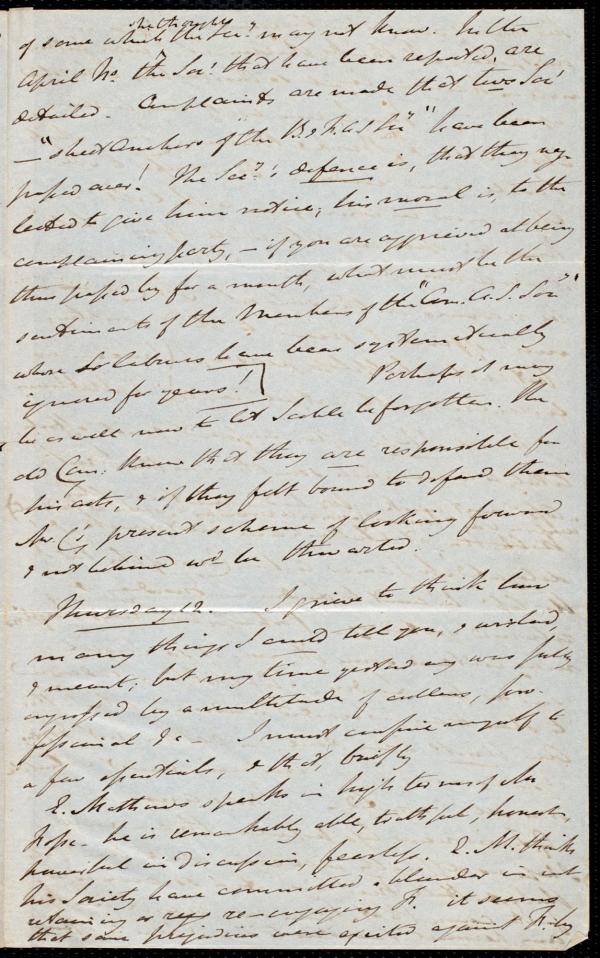 she thought
of some which the Sec.y may not know. In the
April No. the Soc.s that have been reported, are
detailed. Complaints are made that two Soc.s
— "sheet anchors of the B. & F. A. S. Soc.y" have been
passed over! The Sec.y's defence is, that they neg-
lected to give him notice; his moral is, to the
complaining party, — if you are aggrieved at being
thus passed by for a month, what must be the
sentiments of the Members of the "Am. A. S. Soc.y"
whose labours have been systematically
ignored for years!] Perhaps it may
be as well now to let Scoble be forgotten. The
old Com. knew that they are responsible for
his acts, & if they felt bound to defend them
Mr. C's present scheme of looking forward
& not behind wd. be thwarted.
Thursday 12. I grieve to think how
many things I could tell you, & wished,
& meant; but my time yesterday was fully
engrossed by a multitude of callers, pro-
fessional &c — I must confine myself to
a few essentials, & that, briefly
E. Mathews speaks in high terms of Mr
Pope. he is remarkably able, truthful, honest,
powerful in discussion, fearless. E. M. thinks
his Society have committed a blunder in not
retaining or re-engaging P. it seems
that some prejudices were excited against P. by